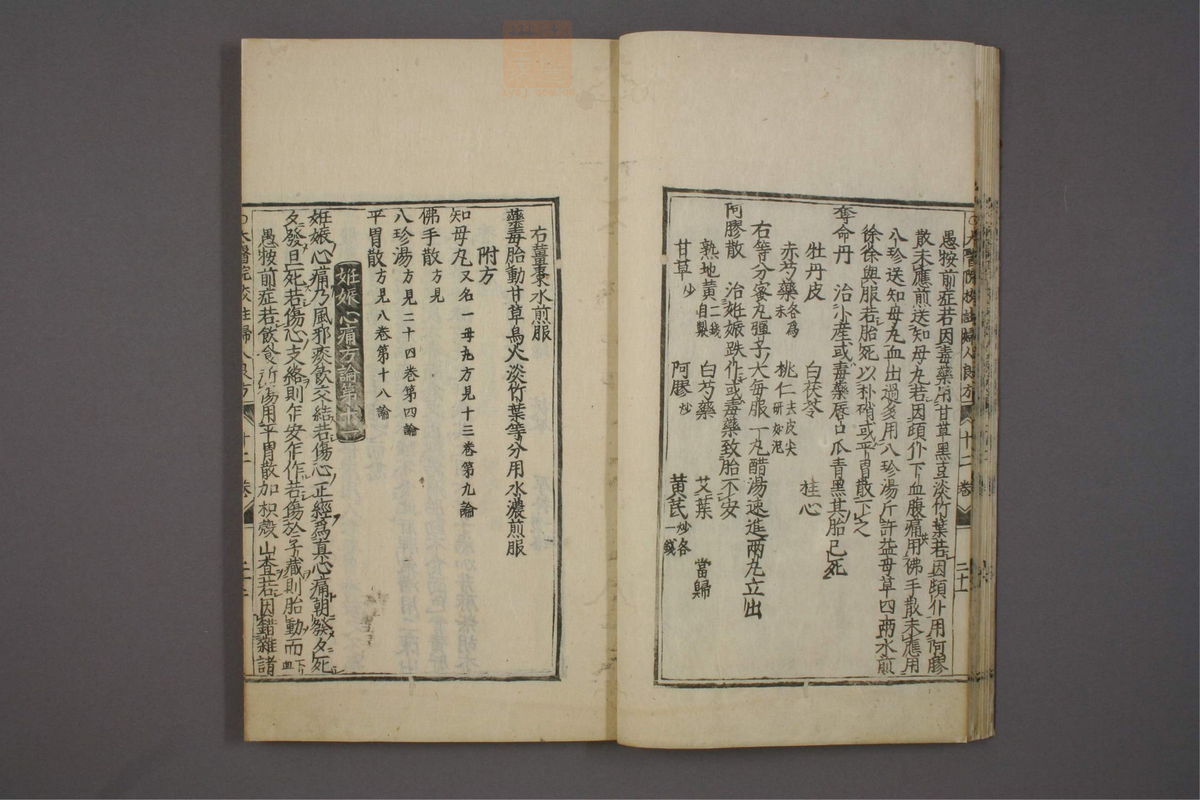 太醫院校註婦人良方 十二卷 二十一
愚按前症若因毒藥用甘草黑豆淡竹葉若因頓仆用阿膠
散未應煎送知母丸若因頓仆下血腹痛用佛手散未應用
八珍送知母丸血出過多用八珍湯斤許益母草四兩水煎
徐徐與服若胎死以朴硝或平胃散下之
奪命丹 治小産或毒藥唇口瓜青黑其胎已死
牡丹皮 白茯苓 桂心
赤芍藥 各為末 桃仁 去皮尖研如泥
右等分蜜丸彈子大每服一丸醋湯速進兩丸立出
阿膠散 治姙娠跌作或毒藥致胎不安
熟地黃 二錢自製 白芍藥 艾葉 當歸
甘草 炒 阿膠 炒 黃芪 炒各一錢
右薑棗水煎服
藥毒胎動甘草烏大淡竹葉等分用水濃煎服
附方
知母丸 又名一母丸方見十三卷第九論
佛手散 方見
八珍湯 方見二十四卷第四論
平胃散 方見八卷第十八論
姙娠心痛方論第十二
姙娠心痛乃風邪痰飲交結若傷心正經為真心痛朝發夕死
夕發旦死若傷心支絡則乍安乍作若傷於子藏則胎動而血下
愚按前症若飲食所傷用平胃散加枳殼山查若因錯雜諸
太醫院校註婦人良方 十二卷